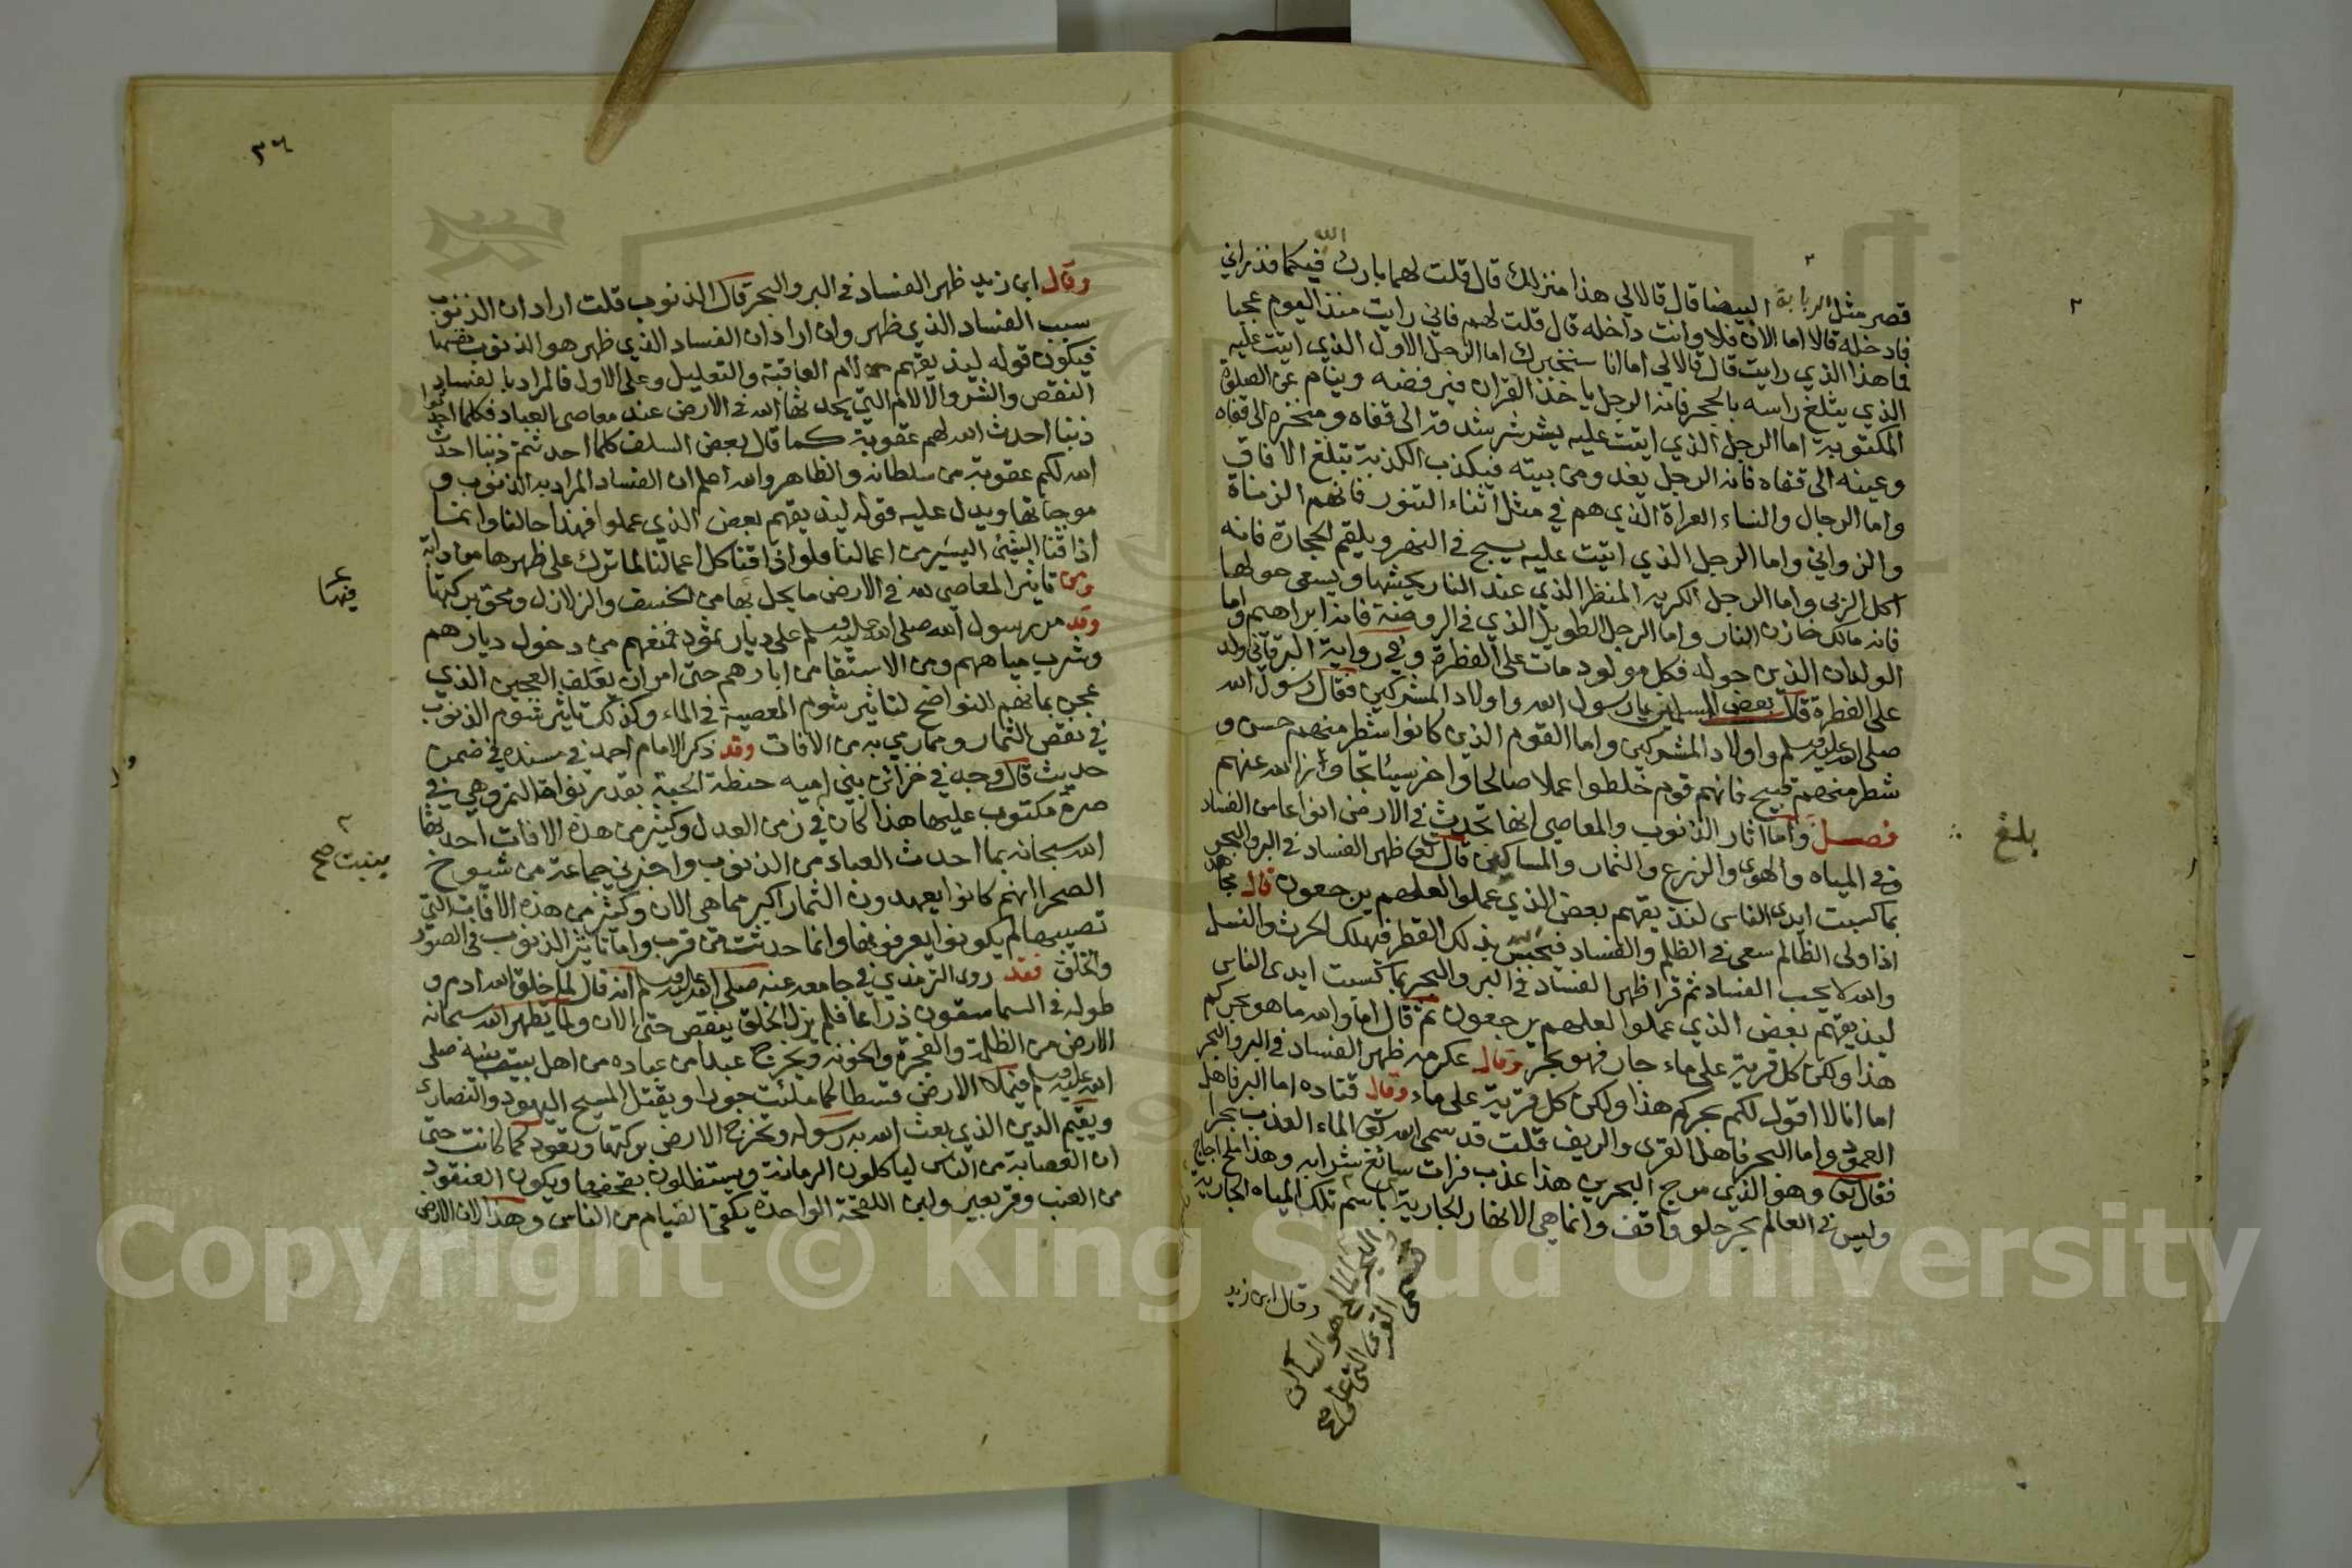 قصر مثل الربابة البيضا قال قالا لي هذا منزلك قال قلت لهما بارك الله فيكما فذراني
فادخله قالا اما الان فلا وانت داخله قال قلت لهم فاني رايت منذ اليوم عجبا
فما هذا الذي رايت قال قالا لي اما انا سنخبرك اما الرجل الاول الذي اتيت عليه
الذي يثلغ راسه بالحجر فانه الرجل ياخذ القران فيرفضه وينام عن الصلوة
المكتوبة اما الرجل الذي اتيت عليه يشرشر شدقه الى قفاه ومنخره الى قفاه
وعينه الى قفاه فانه الرجل يغدو من بيته فيكذب الكذبة تبلغ الافاق
واما الرجال والنساء العراة الذي هم في مثل اثناء التنور فانهم الزناة
والزواني واما الرجل الذي اتيت عليه يسبح في النهر ويلقم الحجارة فانه
اكل الربى واما الرجل الكريه المنظر الذي عند النار يحشها ويسعى حولها
فانه مالك خازن النار واما الرجل الطويل الذي في الروضة فانه ابراهيم واما
الولدان الذين حوله فكل مولود مات على الفطرة وفي رواية البرقاني ولد
على الفطرة قال بعض المسلمين يارسول الله واولاد المشركين فقال رسول الله
صلى الله عليه وسلم واولاد المشركين واما القوم الذين كانوا شطر منهم حسن و
شطر منهم قبيح فانهم قوم خلطوا عملا صالحا واخر سيئا تجاوز الله عنهم
فصل واما اثار الذنوب والمعاصي انها تحدث في الارض انواعا من الفساد
في المياه والهوى والزرع والثمار والمساكين قال تعالى ظهر الفساد في البر والبحر
بما كسبت ايدي الناس لنذيقهم بعض الذي عملوا لعلهم يرجعون قال مجاهد
اذا ولى الظالم سعى في الظلم والفساد فيحبس الله بذلك القطر فيهلك الحرث والنسل
والله لا يحب الفساد ثم قرا ظهر الفساد في البر والبحر بما كسبت ايدى الناس
ليذيقهم بعض الذي عملوا لعلهم يرجعون ثم قال اما والله ما هو بحركم
هذا ولكن كل قرية على ماء جار فهو بحر وقال عكرمه ظهر الفساد في البر والبحر
اما انا لا اقول لكم بحركم هذا ولكن كل قرية على ماء وقال قتاده اما البر فاهل
العمود واما البحر فاهل القرى والريف قلت قد سمى الله تعالى الماء العذب بحرا
فقال تعالى وهو الذي مرج البحرين هذا عذب فرات سائغ شرابه وهذا ملح اجاج
وليس في العالم بحر حلو واقف وانما هي الانهار الجارية باسم تلك المياه الجارية
وقال ابن زيد
بلغ
٣٦
وقال ابن زيد ظهر الفساد في البر والبحر قال الذنوب قلت اراد ان الذنوب
سبب الفساد الذي ظهر وان اراد ان الفساد الذي ظهر هو الذنوب نفسها
فيكون قوله ليذيقهم لام العاقبة والتعليل وعلى الاول فالمراد بالفساد
النقص والشر والالام التي يحدثها الله في الارض عند معاصي العباد فكلما احدثوا
ذنبا احدث الله لهم عقوبة كما قال بعض السلف كلما احدثتم ذنبا احدث
الله لكم عقوبة من سلطانه والظاهر والله اعلم ان الفساد المراد به الذنوب و
موجباتها ويدل عليه قوله ليذيقهم بعض الذي عملوا فهذا حالنا وانما
اذاقنا الشئ اليسير من اعمالنا ولو اذاقنا كل اعمالنا لما ترك على ظهرها من دابة
ومن تاثير المعاصي لله في الارض ما يحل بها من الخسف والزلازل ومحق بركتها
وقد مر رسول الله صلى الله عليه وسلم على ديار ثمود فمنعهم من دخول ديارهم
وشرب مياههم ومن الاستقا من ابارهم حتى امر ان يعلف العجين الذي
عجن بمائهم للنواضح لتاثير شوم المعصية في الماء وكذلك تاثير شوم الذنوب
في نقص الثمار وممارمي به من الافات وقد ذكر الامام احمد في مسنده في ضمن
حديث قال وجد في خزائن بني اميه حنطة الحبة بقدر نواة التمر وهي في
صرة مكتوب عليها هذا كان في زمن العدل وكثير من هذه الافات احدثها
الله سبحانه بما احدث العباد من الذنوب واخبرني جماعة من شيوخ
الصحرا انهم كانوا يعهدون الثمار اكبر مما هي الان وكثير من هذه الافات التي
تصيبها لم يكونوا يعرفونها وانما حدثت من قرب واما تاثير الذنوب في الصور
والخلق فقد روى الترمذي في جامعه عنه صلى الله عليه وسلم انه قال لما خلق الله ادم و
طوله في السما ستون ذراعا فلم يزل الخلق ينقص حتى الان ولما يطهر الله سبحانه
الارض من الظلمة والفجرة والخونة ويخرج عبدا من عباده من اهل بيت نبيه صلى
الله عليه وسلم فيملا الارض قسطا كما ملئت جورا ويقتل المسيح اليهود والنصارى
ويقيم الدين الذي بعث الله به رسوله وتخرج الارض بركتها وتعود كما كانت حتى
ان العصابة من الناس لياكلون الرمانة ويستظلون بقحفها ويكون العنقود
من العنب وقر بعير ولبن اللقحة الواحدة يكفي الفيام من الناس وهذا لان الارض
فيها
Copyright © King Saud University